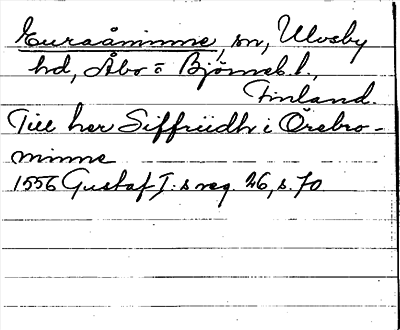 Euraåminne, sn, Ulvsby
hd, Åbo o Björneb. l.,
Finland.
Till her Siffriidh i Örebro-
minne
1556 Gustaf I:s reg. 26, s. 70